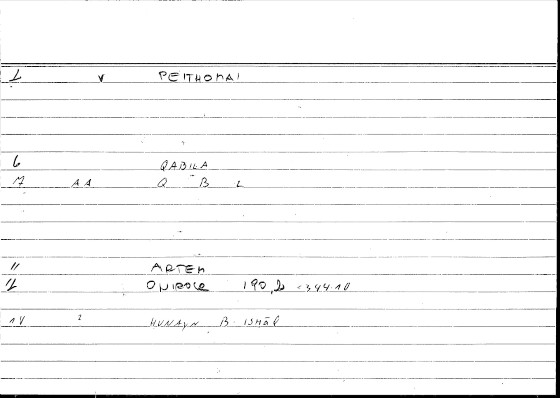 1 v PEITHOMAI
6 QABILA
7 AA Q B L
11 ARTEM
12 ONIROCR 190,2 = 344.10
14 ? HUNAYN B. ISHĀQ